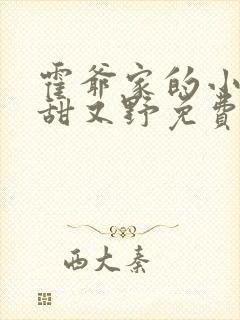 霍爷家的小
甜又野免费
西大秦